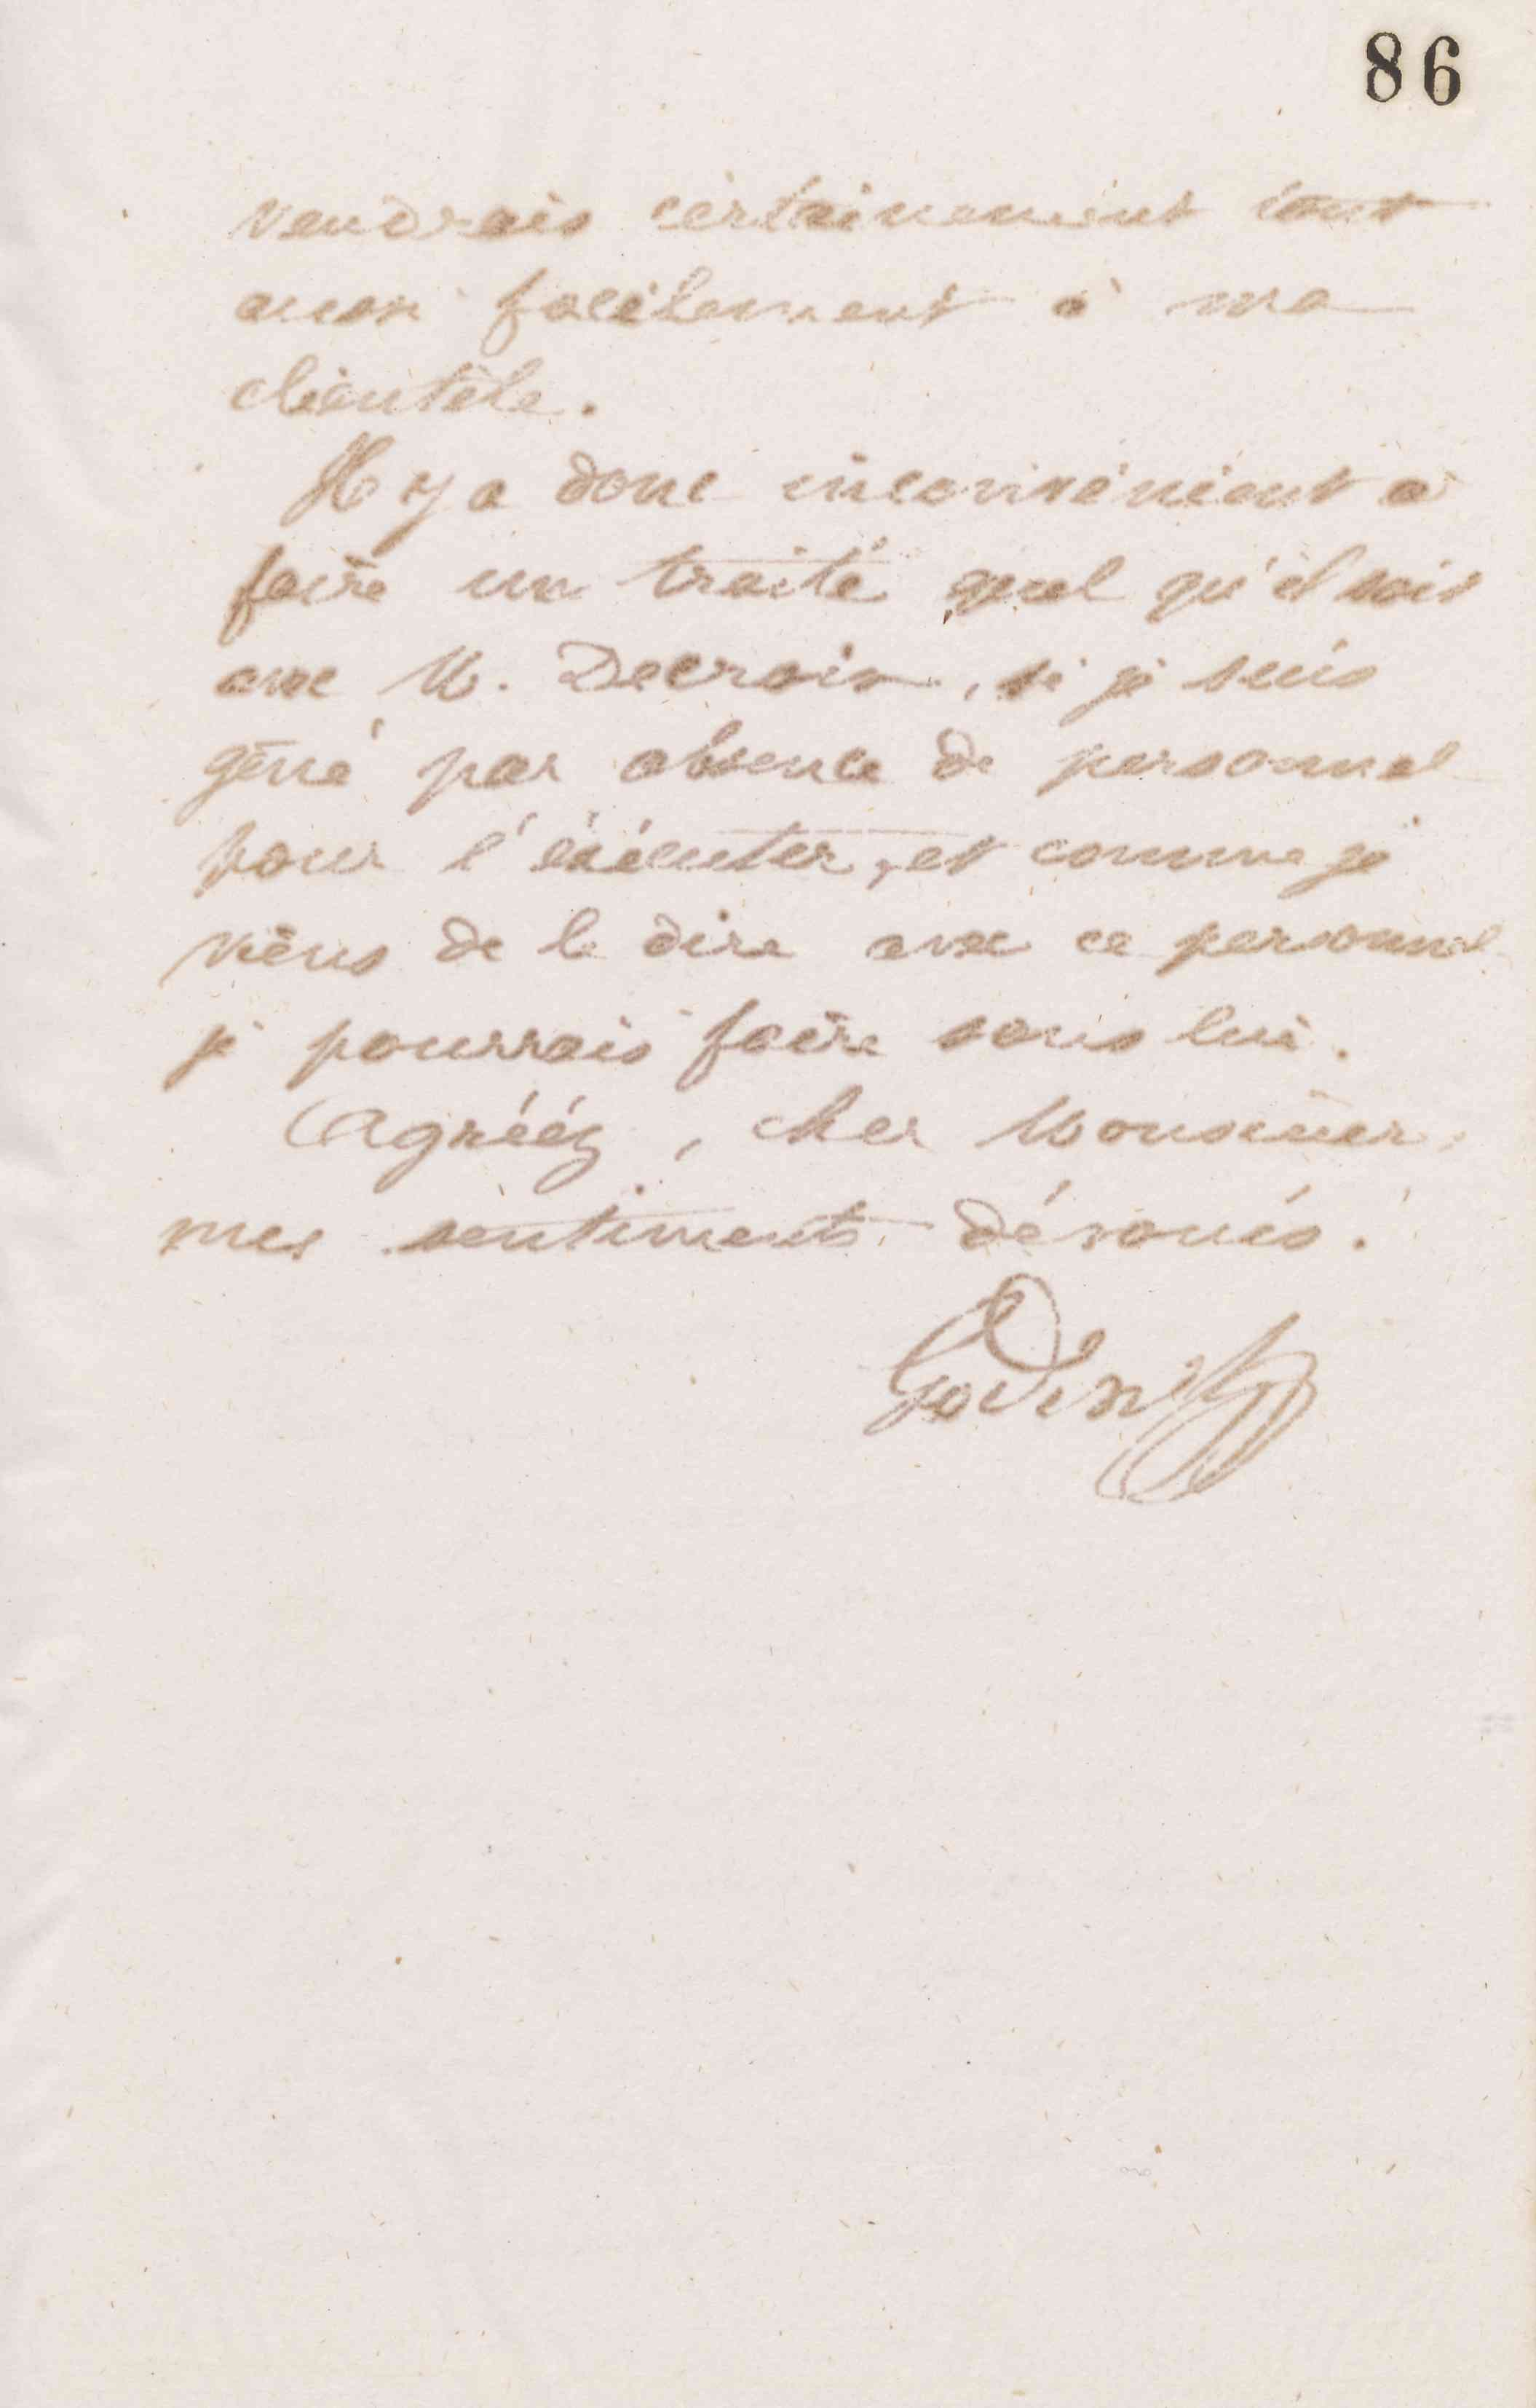 86
vendrais certainement tout
aussi facilement à ma
clientèle.
Il y a donc inconvénient à
faire un traité quel qu'il soit
avec M. Decroix, si je suis
gêné par absence de personnel
pour l'exécuter, et comme je
viens de le dire avec ce personnel
je pourrais faire sans lui.
Agréez, cher Monsieur,
mes sentiments dévoués.
Godin